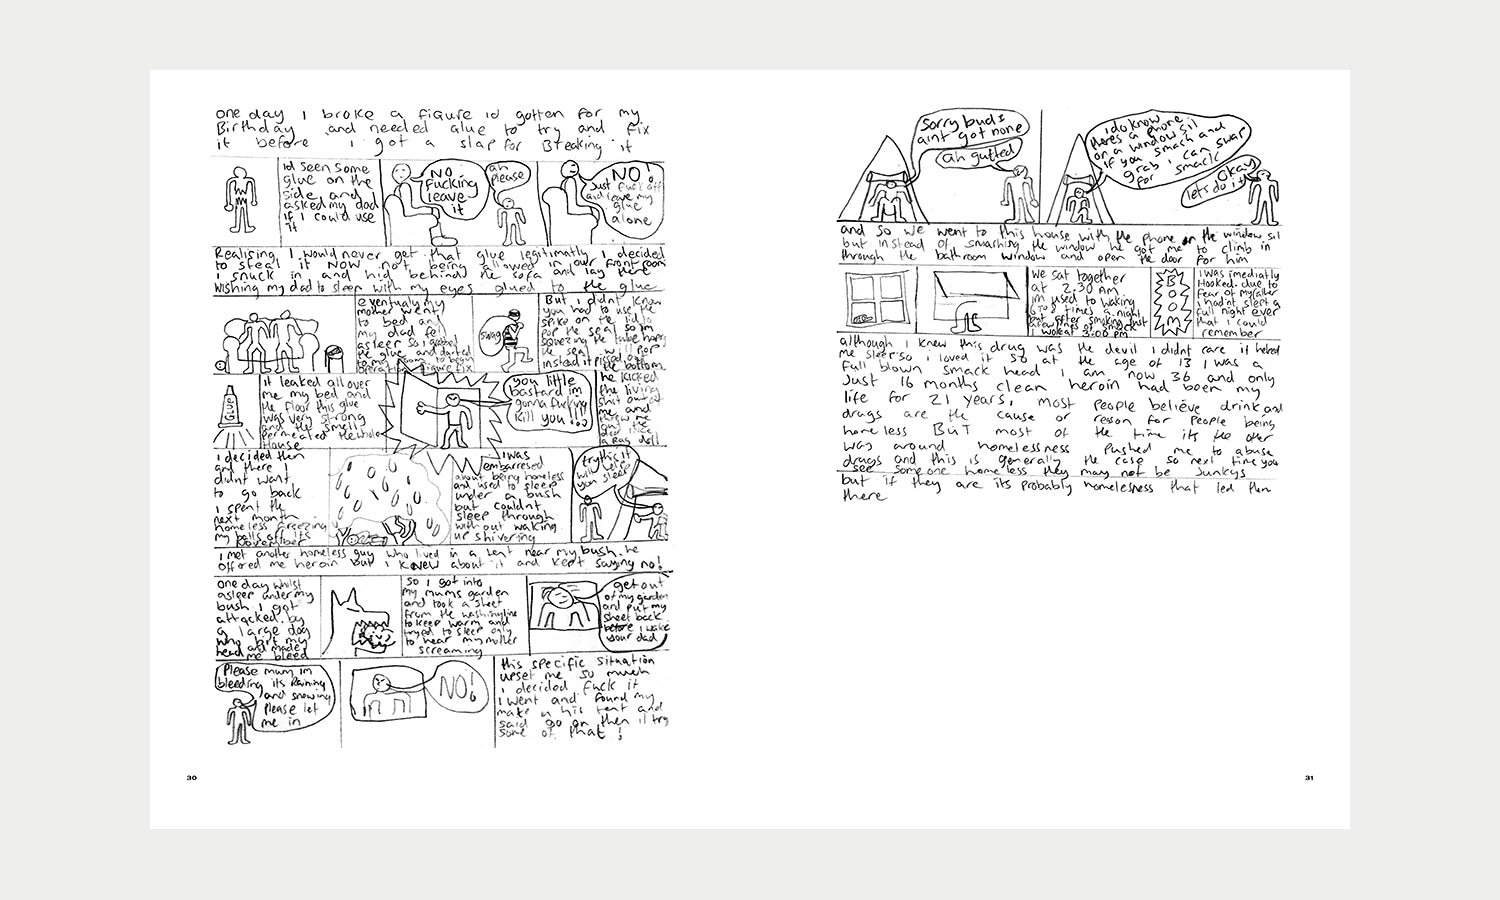 one day I broke a figure id gotten for my
Birthday and needed glue to try and fix
it before I got a slap for Breaking it
id seen some
glue on the
side and I
asked my dad
if I could use
it
NO
fucking
leave
it
ah
please
NO!
Just fuck off
and leave my
glue
alone
Realising I would never get that glue legitimatly I decided
to steal it NOW not being allowed in our front room
I snuck in and hid behind the sofa and lay there
wishing my dad to sleep with my eyes glued to the glue
eventualy my
mother went
to bed and
my dad fell
asleep so I grabbed
the glue and darted
to begin
operation figure fix
SWAG
But I didnt know
you had to use the
spike on the lid to
pop the seal so im
sqeezing the tube hoping
the seal will pop
instead it pissed out
the bottom
GLUE
it leaked all over
me my bed and
the floor this glue
was very strong
and the smell
permeated the whole
House
you little
bastard im
gonna fucking
kill you!!
he kicked
the living
shit out of
me and
threw me
out the
door like
a Rag doll
I decided then
and there I
didnt want
to go back
I spent the
next month
homeless freezing
my balls off its
November
I was
embarresed
about being homeless
and used to sleep
under a bush
but couldnt
sleep through
with out waking
up shivering
try this it
will help
you sleep
I met another homeless guy who lived in a tent near my bush. he
offered me heroin but I knew about it and kept saying no!
one day whilst
asleep under my
bush I got
attacked by
a large dog
who bit my
head and made
me bleed
so I got into
my mums garden
and took a sheet
from the washing line
to keep warm and
tryed to sleep only
to hear my mother
screaming
get out
of my garden
and put my
sheet back
before I wake
your dad
Please mum im
bleeding its Raining
and snowing
please let
me in
NO!
this specific situation
upset me so much
I decided fuck it
I went and found my
mate in his tent and
said go on then il try
some of that!
30
Sorry bud I
aint got none
ah gutted
I do know
theres a phone
on a window sil
if you smash and
grab I can swap
for smack
Okay
lets do it
and so we went to this house with the phone on the window sil
but instead of smashing the window he got me to climb in
through the bathroom window and open the door for him
we sat together
at 2.30 AM
im used to waking
6 to 8 times a night
but after smoking just
a few lines of smack
I woke at 3:00 PM
BOOM
I was imediatly
Hooked. due to
fear of my father
I hadnt slept a
full night ever
that I could
remember
although I knew this drug was the devil I didnt care it helped
me sleep so I loved it so at the age of 13 I was a
full blown smack head I am now 36 and only
Just 16 months clean heroin had been my
life for 21 years, most people believe drink and
drugs are the cause or reason for people being
homeless BUT most of the time its the other
way around homelessness pushed me to abuse
drugs and this is generally the case so next time you
see someone homeless they may not be Junkys
but if they are its probably homelesness that led them
there
31